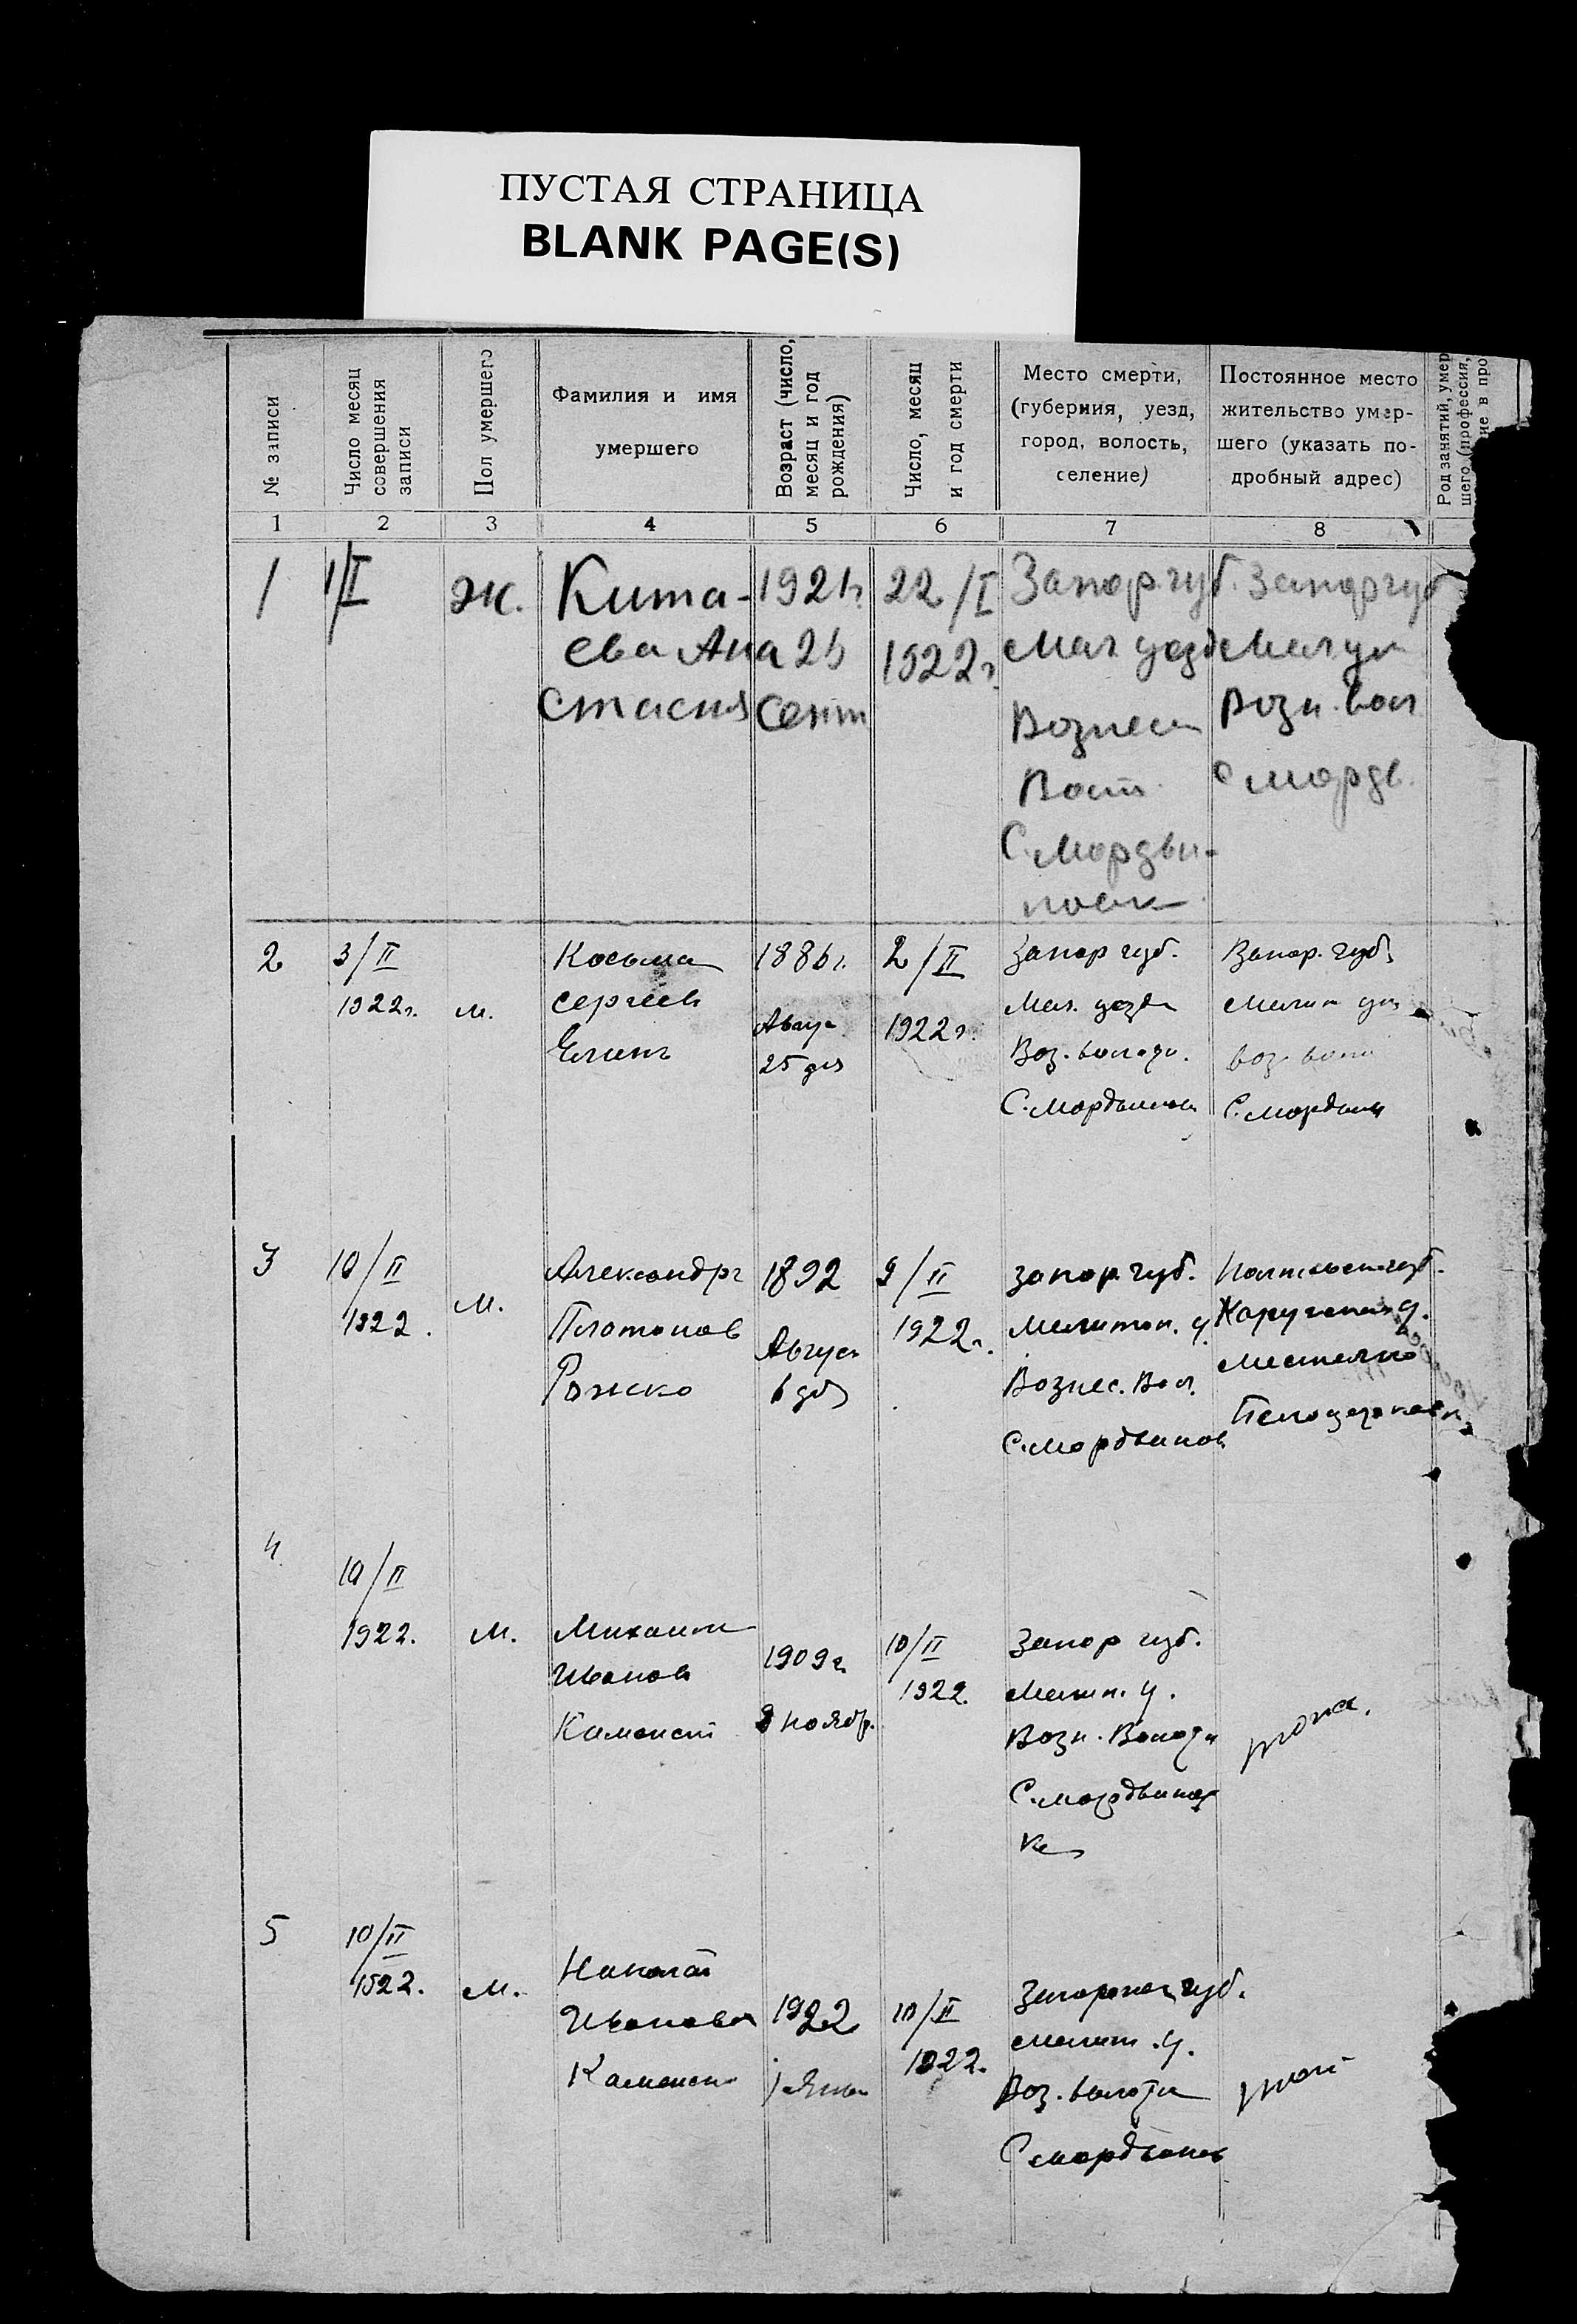 ПУСТАЯ СТРАНИЦА
BLANK PAGE(S)
№ записи
Число месяц
совершения
записи
Пол умершего
Фамилия и имя
умершего
Возраст (число,
месяц и год
рождения)
Число, месяц
и год смерти
Место смерти,
(губерния, уезд,
город, волость,
селение)
Постоянное место
жительство умер-
шего (указать по-
дробный адрес)
Род занятий, умер
шего (профессия,
ие в про
1
2
3
4
5
6
7
8
1
1/I
ж.
Кита-
ева Ана
стасия
1921г.
Сент
22/I
1922г.
Запор. губ.
Мел уезд
Вознесен
С. Мордви-
Запор губ
Возн. вол
с Мордв.
2
3/II
1922г.
м.
Косьма
Сергеев
1886г.
Август
25 дня
2/II
1922г.
Запор губ.
Мел. уезда
Воз. волости.
С. Мордвинов
Запор. губ.
Мелит
воз. воло
С. Мордвин
3
10/II
1922.
м.
Александр
Платонов
Рожко
1892
Август
6 дня
9/II
1922г.
Запор. губ.
Мелитоп. у.
Вознес. Вол.
С. Мордвинов
Полтавск губ.
местечко
Белоцерковка
4
10/II
1922.
м.
Михаил
Иванов
Каменст
1909г.
8 ноябр.
10/II
1922.
Запор губ.
Мелит. у.
Возн. Волости
С. Мордвинов
ке
тоже.
5
10/II
1922.
м.
Николай
Иванович
Каменск
1922
1 Янв
10/II
1922.
губ.
Мелит. у.
Воз. волости
С Мордвинов